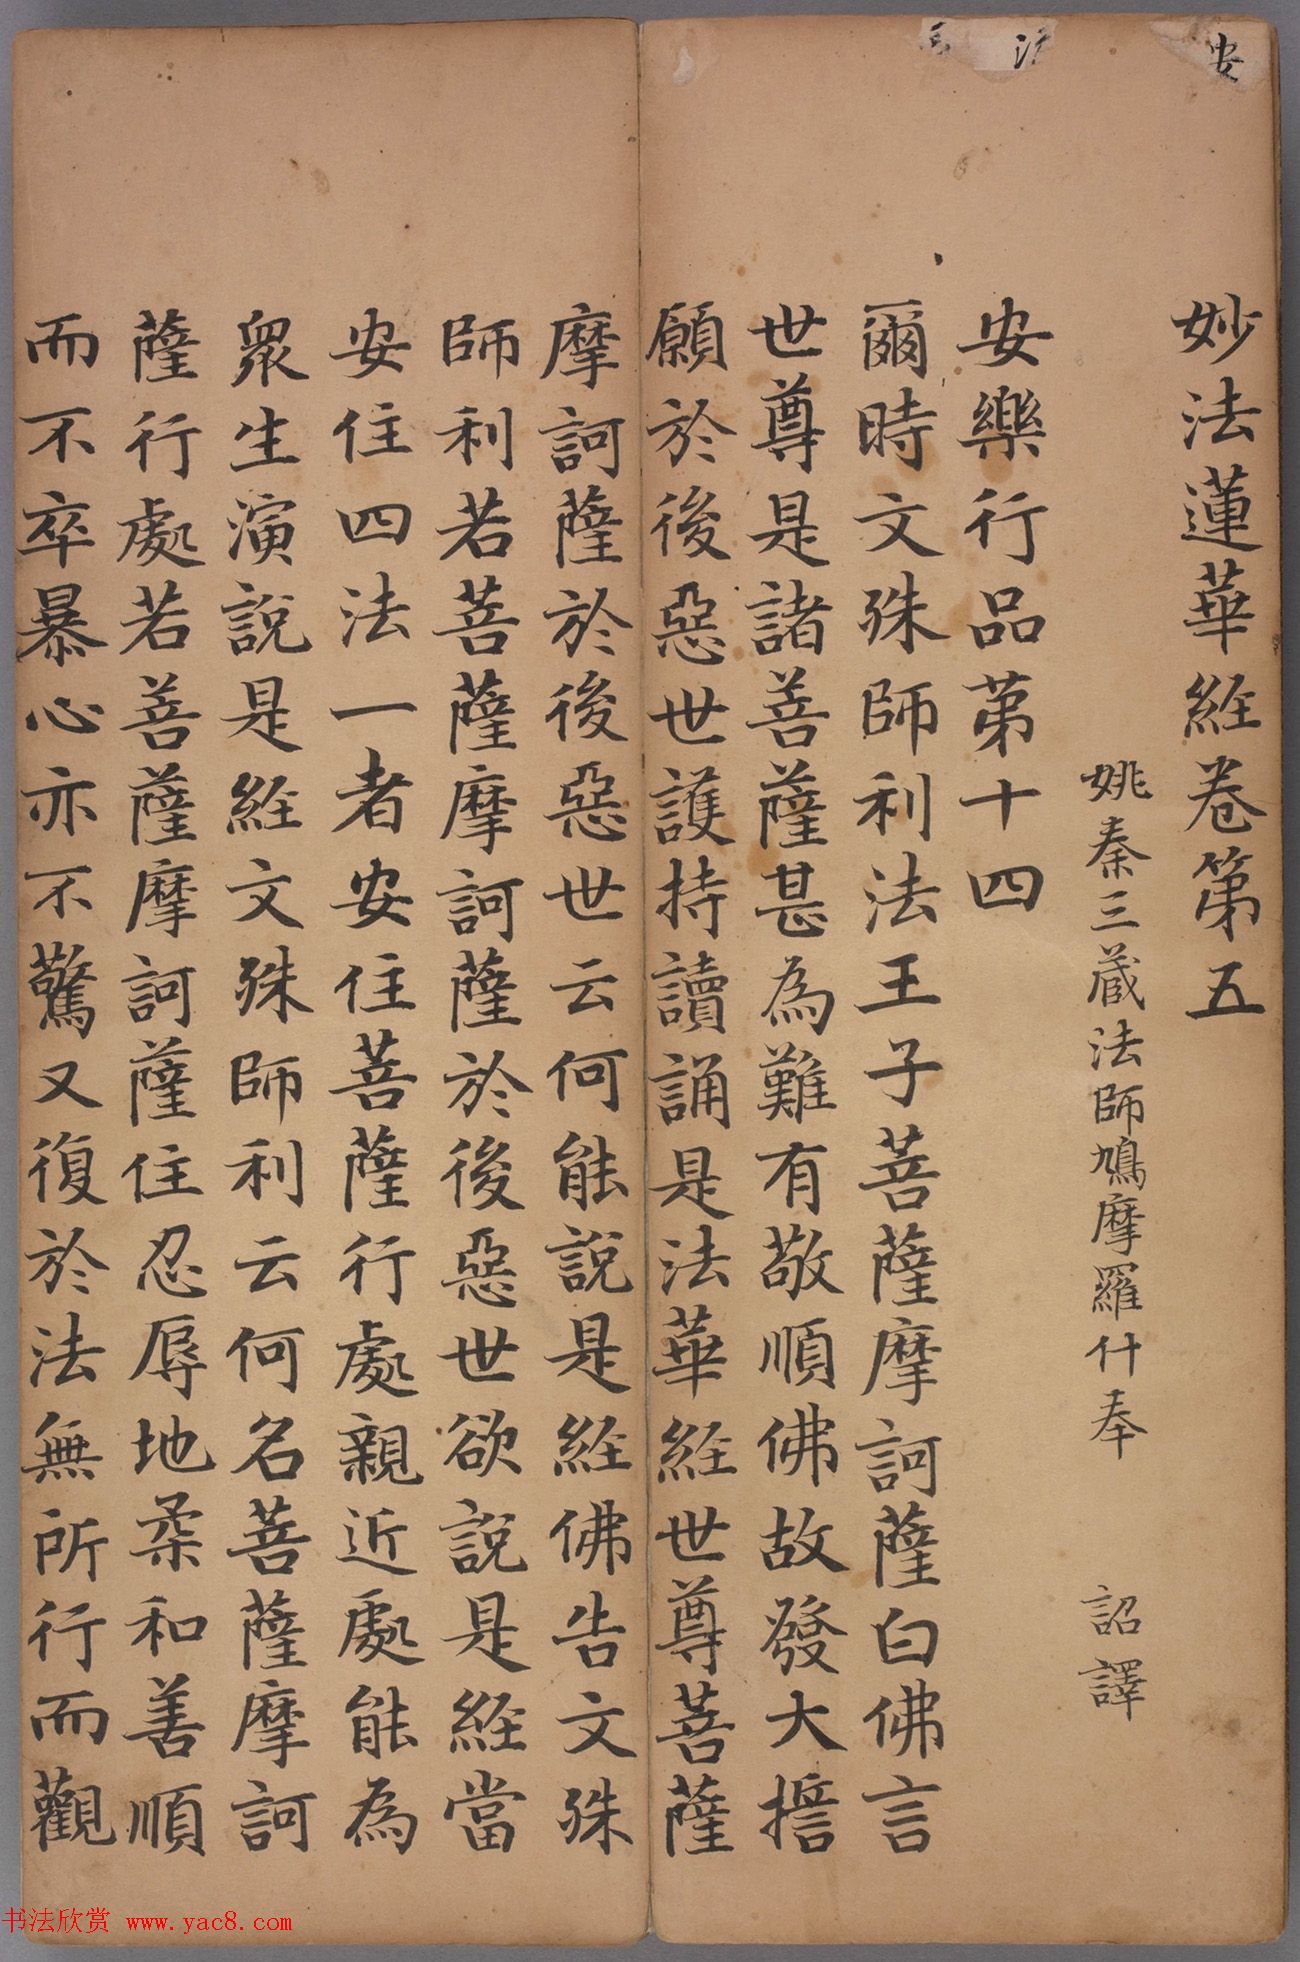 安
法
妙法蓮華經卷第五
姚秦三藏法師鳩摩羅什奉 詔譯
安樂行品第十四
爾時文殊師利法王子菩薩摩訶薩白佛言
世尊是諸菩薩甚為難有敬順佛故發大誓
願於後惡世護持讀誦是法華經世尊菩薩
摩訶薩於後惡世云何能說是經佛告文殊
師利若菩薩摩訶薩於後惡世欲說是經當
安住四法一者安住菩薩行處親近處能為
眾生演說是經文殊師利云何名菩薩摩訶
薩行處若菩薩摩訶薩住忍辱地柔和善順
而不卒暴心亦不驚又復於法無所行而觀
书法欣赏 www.yac8.com